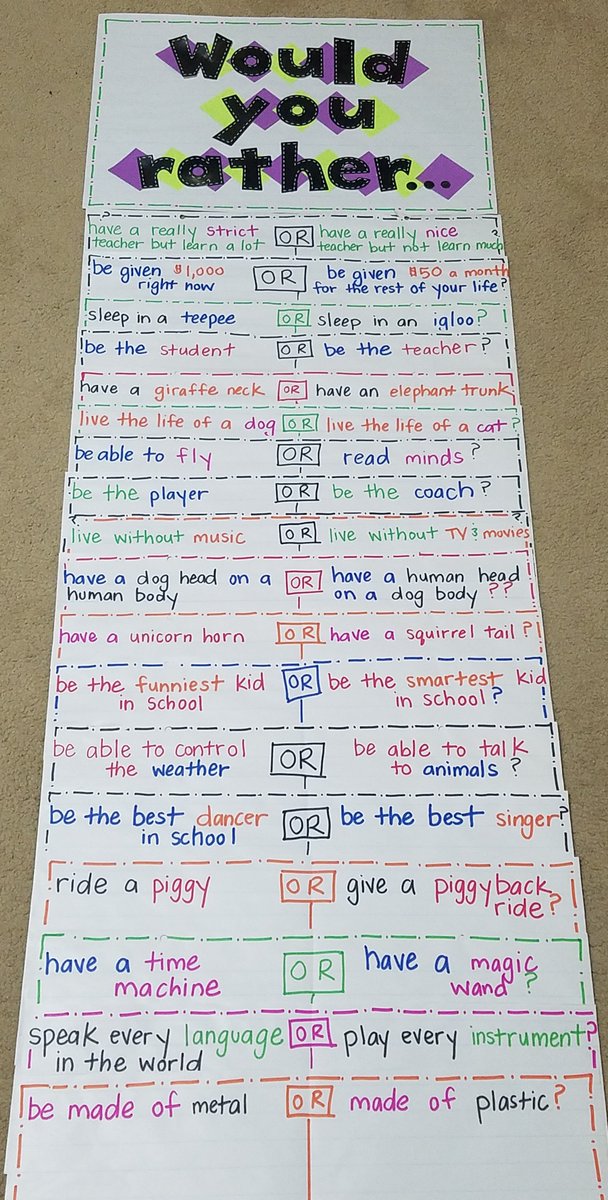 Would
you
rather...
have a really strict OR have a really nice ?
teacher but learn a lot teacher but not learn much
be given $1,000 OR be given $50 a month
right now for the rest of your life?
sleep in a teepee OR sleep in an igloo?
be the student OR be the teacher?
have a giraffe neck OR have an elephant trunk
live the life of a dog OR live the life of a cat?
be able to fly OR read minds?
be the player OR be the coach?
live without music OR live without TV & movies?
have a dog head on a OR have a human head
human body on a dog body ??
have a unicorn horn OR have a squirrel tail?
be the funniest kid OR be the smartest kid
in school in school?
be able to control OR be able to talk
the weather to animals?
be the best dancer OR be the best singer?
in school
ride a piggy OR give a piggyback
ride?
have a time OR have a magic
machine wand?
speak every language OR play every instrument?
in the world
be made of metal OR made of plastic?